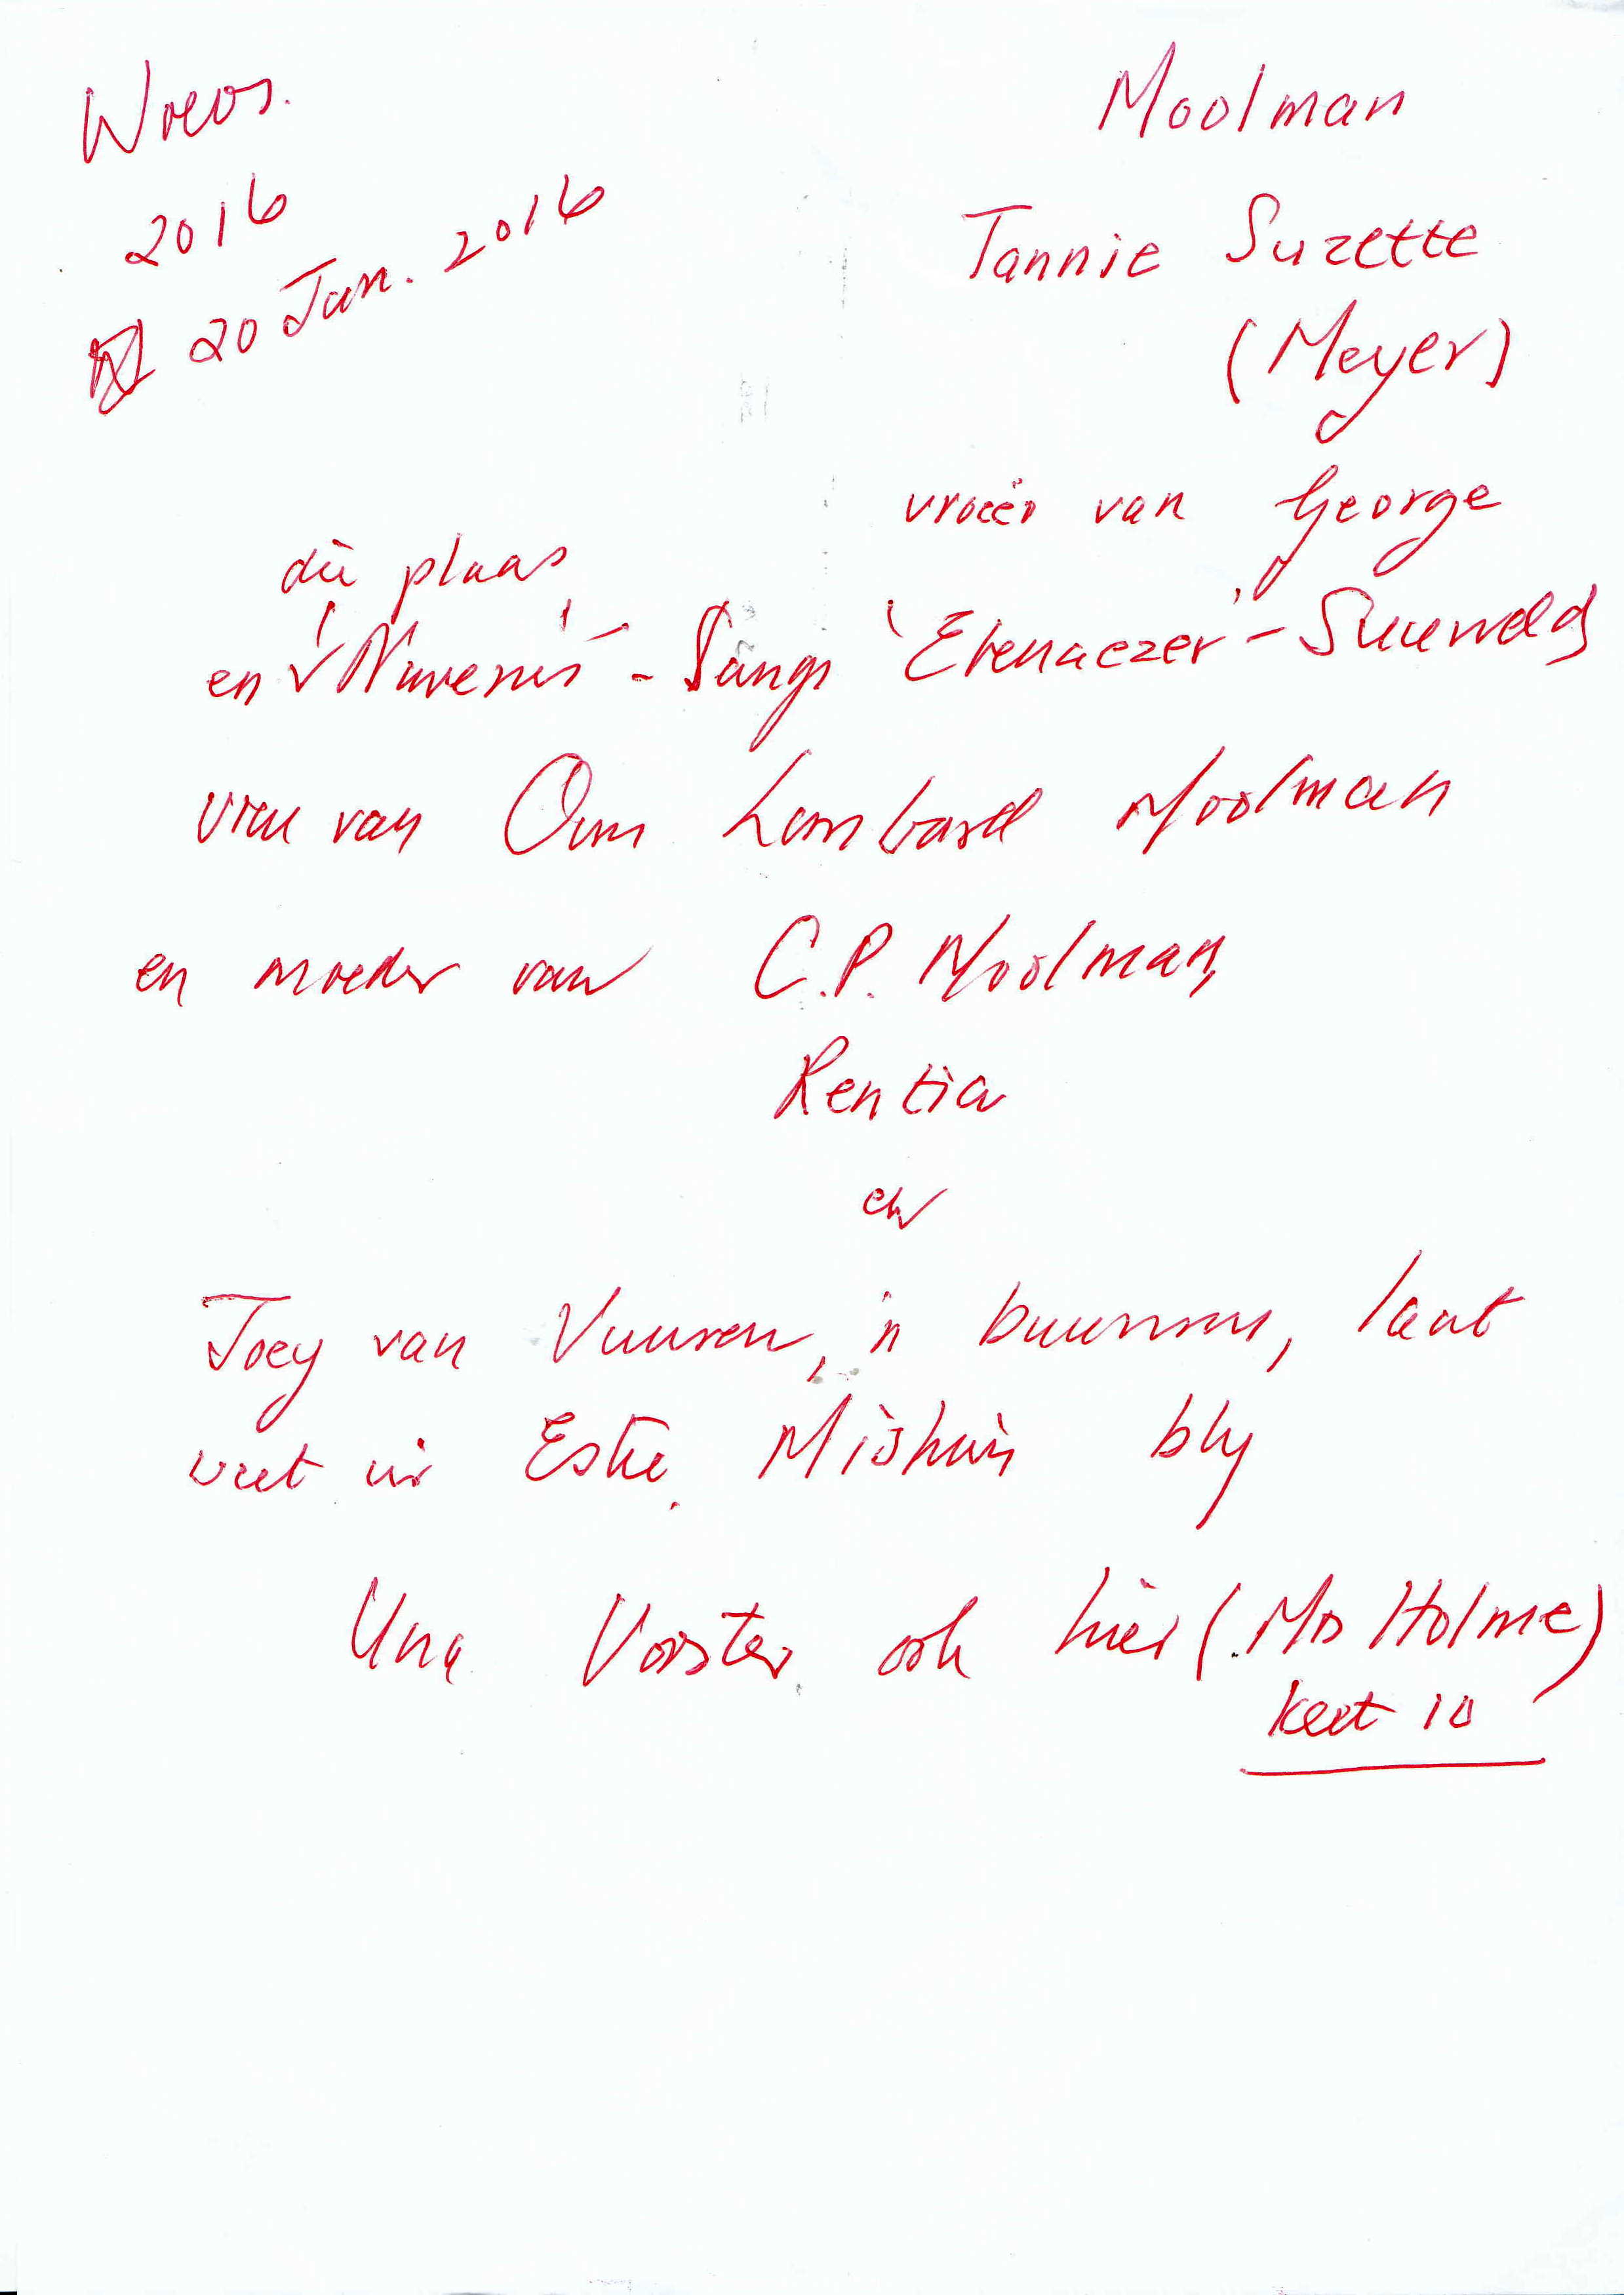 Woens.
2016
20 Jan. 2016
Moolman
Tannie Suzette
(Meyer)
vroeër van George
die plaas
en - Langs 'Ebenaezer' -
vrou van Oom Lombard Moolman
en moeder van C.P. Moolman,
Rentia
en
Joey van Vuuren, 'n buurvrou, laat
weet vir bly
Una Vorster ook hier (Mrs Holme)